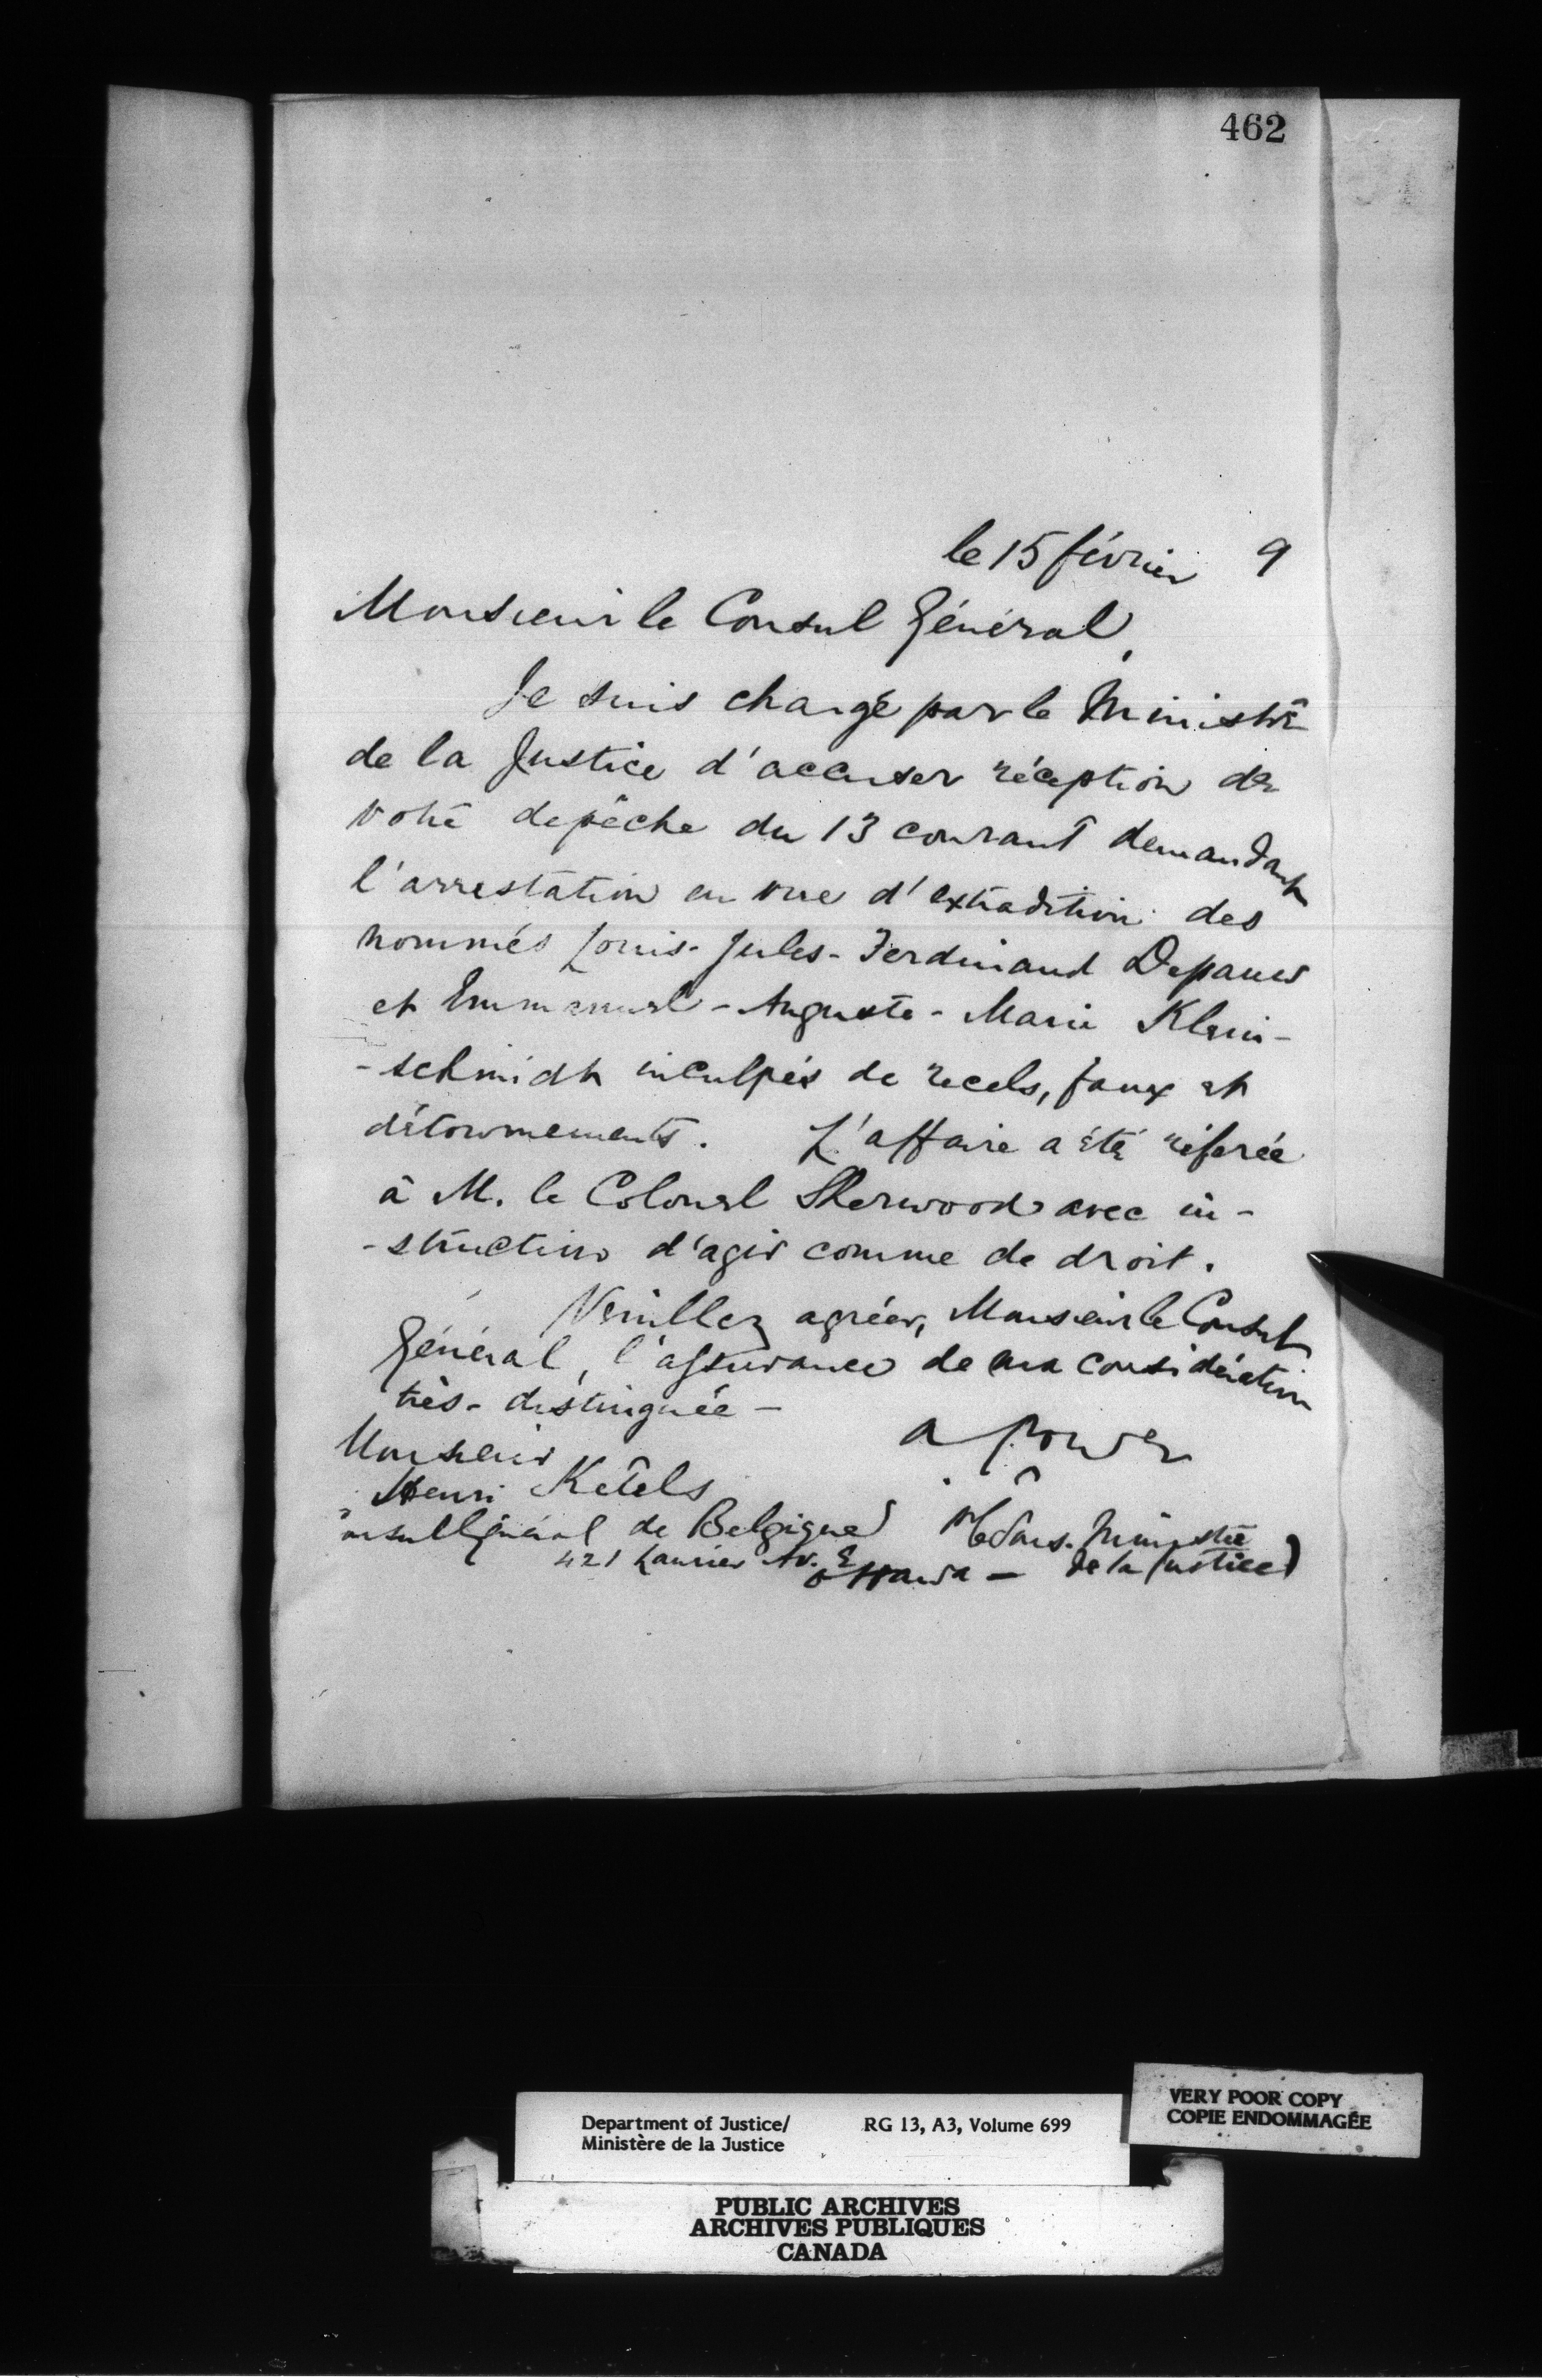 462
le 15 février 9
Monsieur le Consul Général,
Je suis chargé par le Ministre
de la Justice d'accuser réception de
votre depêche du 13 courant demandant
l'arrestation en vue d'extradition des
nommés Louis-Jules-Ferdinand Depauw
et Emmanuel-Auguste-Marie Klein-
-schmidt inculpés de recels, faux et
détournements. L'affaire a été réferée
à M. le Colonel Sherwood avec in-
-struction d'agir comme de droit.
Veuillez agréer, Monsieur le Consul
Général, l'assurance de ma considération
très-distinguée -
A Power
Monsieur
Henri Ketels
Consul Général de Belgique
p. le Sous-Ministre
421 Laurier Av. E
Ottawa - de la Justice
VERY POOR COPY
COPIE ENDOMMAGÉE
Department of Justice/ RG 13, A3, Volume 699
Ministère de la Justice
PUBLIC ARCHIVES
ARCHIVES PUBLIQUES
CANADA